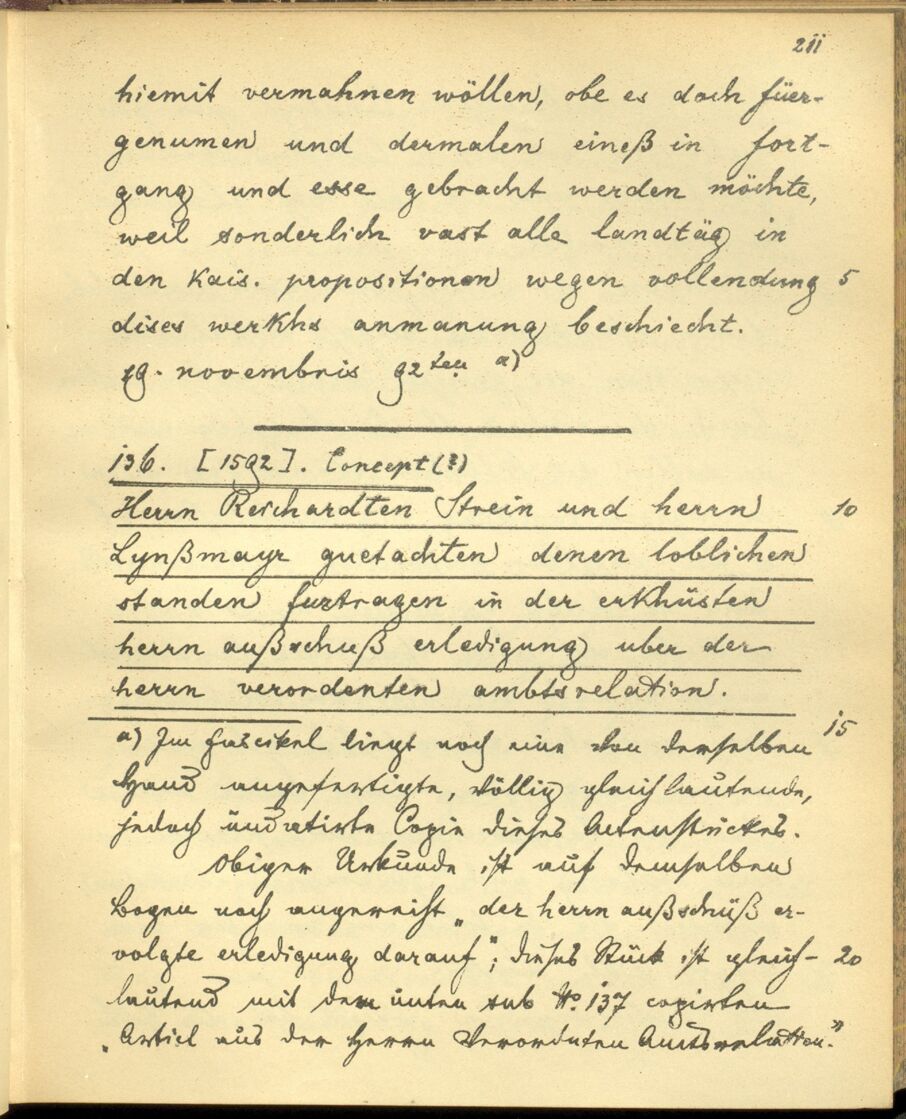 211
hiemit vermahnen wöllen, obe es doch füer-
genumen und dermalen eineß in fort-
gang und esse gebracht werden möchte,
weil sonderlich vast alle landtäg in
den kais. propositionen wegen vollendung 5
dises werkhs anmanung beschiecht.
19. novembris 92ten a)
136. [1592]. Concept(?)
Herrn Reichardten Strein und herrn 10
Lynßmayr guetachten denen loblichen
standen furtragen in der erkhüsten
herrn außschuß erledigung uber der
herrn verordenten ambtsrelation.
a) Im Fascikel liegt noch eine von derselben 15
Hand angefertigte, völlig gleichlautende,
jedoch undatirte Copie dieses Actenstückes.
Obiger Urkunde ist auf demselben
Bogen noch angereiht „der herrn außschuß er-
volgte erledigung darauf"; dieses Stück ist gleich- 20
lautend mit dem unten sub No. 137 copirten
„Articl aus der Herrn Verordnten Amtsrelation."